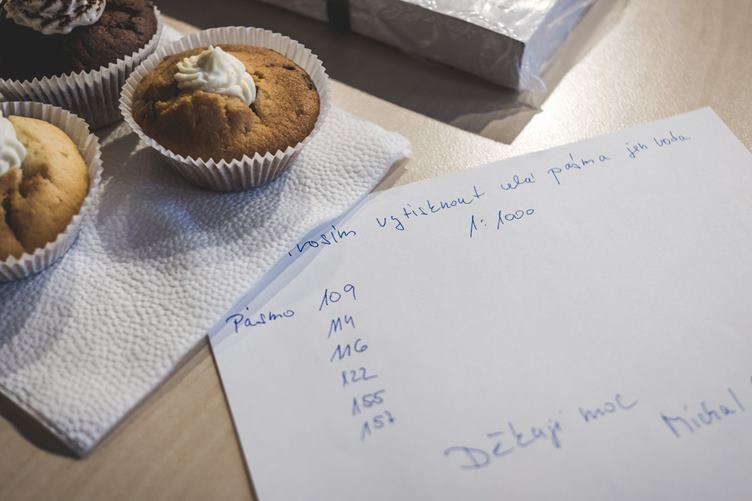 Prosím vytisknout celá pásma jen voda
1:1000
Pásmo 109
114
116
122
155
157
Děkuji moc Michal